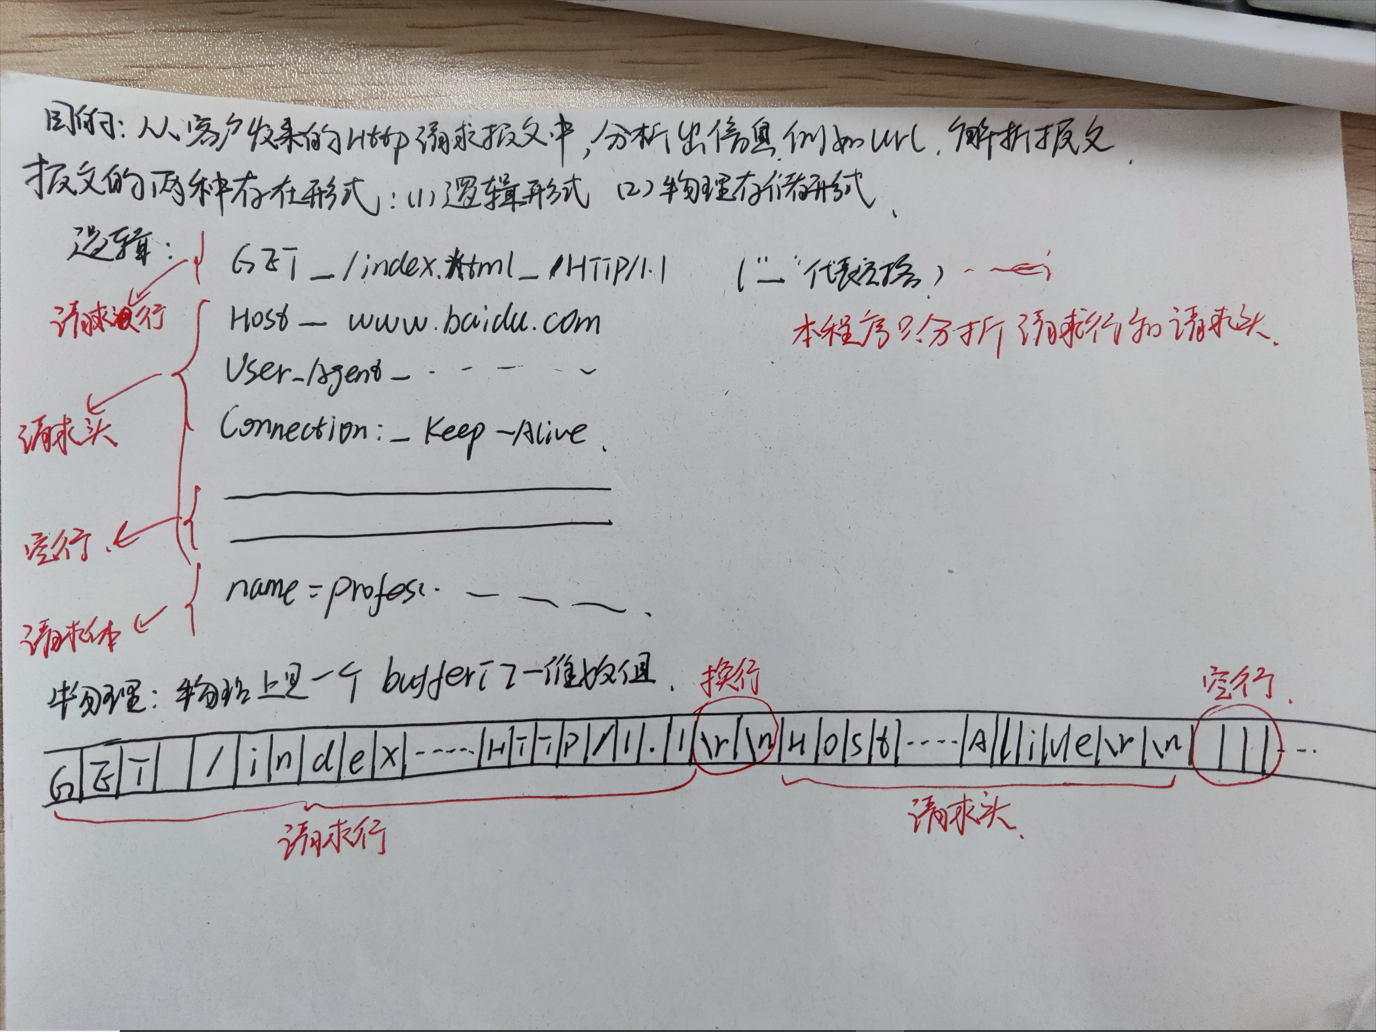 目的：从客户收来的Http请求报文中，分析出信息，例如url. 解析报文
报文的两种存在形式：(1)逻辑形式 (2)物理存储形式.
逻辑：
GET_/index.html_/HTTP/1.1 ("_"代表空格)
请求行
本程序只分析请求行和请求头.
Host_ www.baidu.com
User_Agent_
请求头
Connection:_ Keep-Alive.
空行.
name=profess..
请求体
物理：物理上是一个buffer[]一维数组.
换行
空行.
GET /index.....HTTP/1.1\r\nHost....Alive\r\n ...
请求行
请求头.